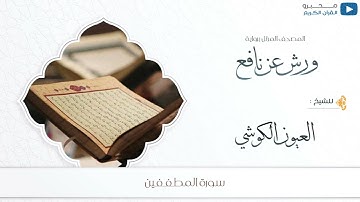 مخبرو
القرآن الكريم
المصحف المرتل برواية
ورش عن نافع
للشيخ :
العيون الكوشي
سورة المطففين